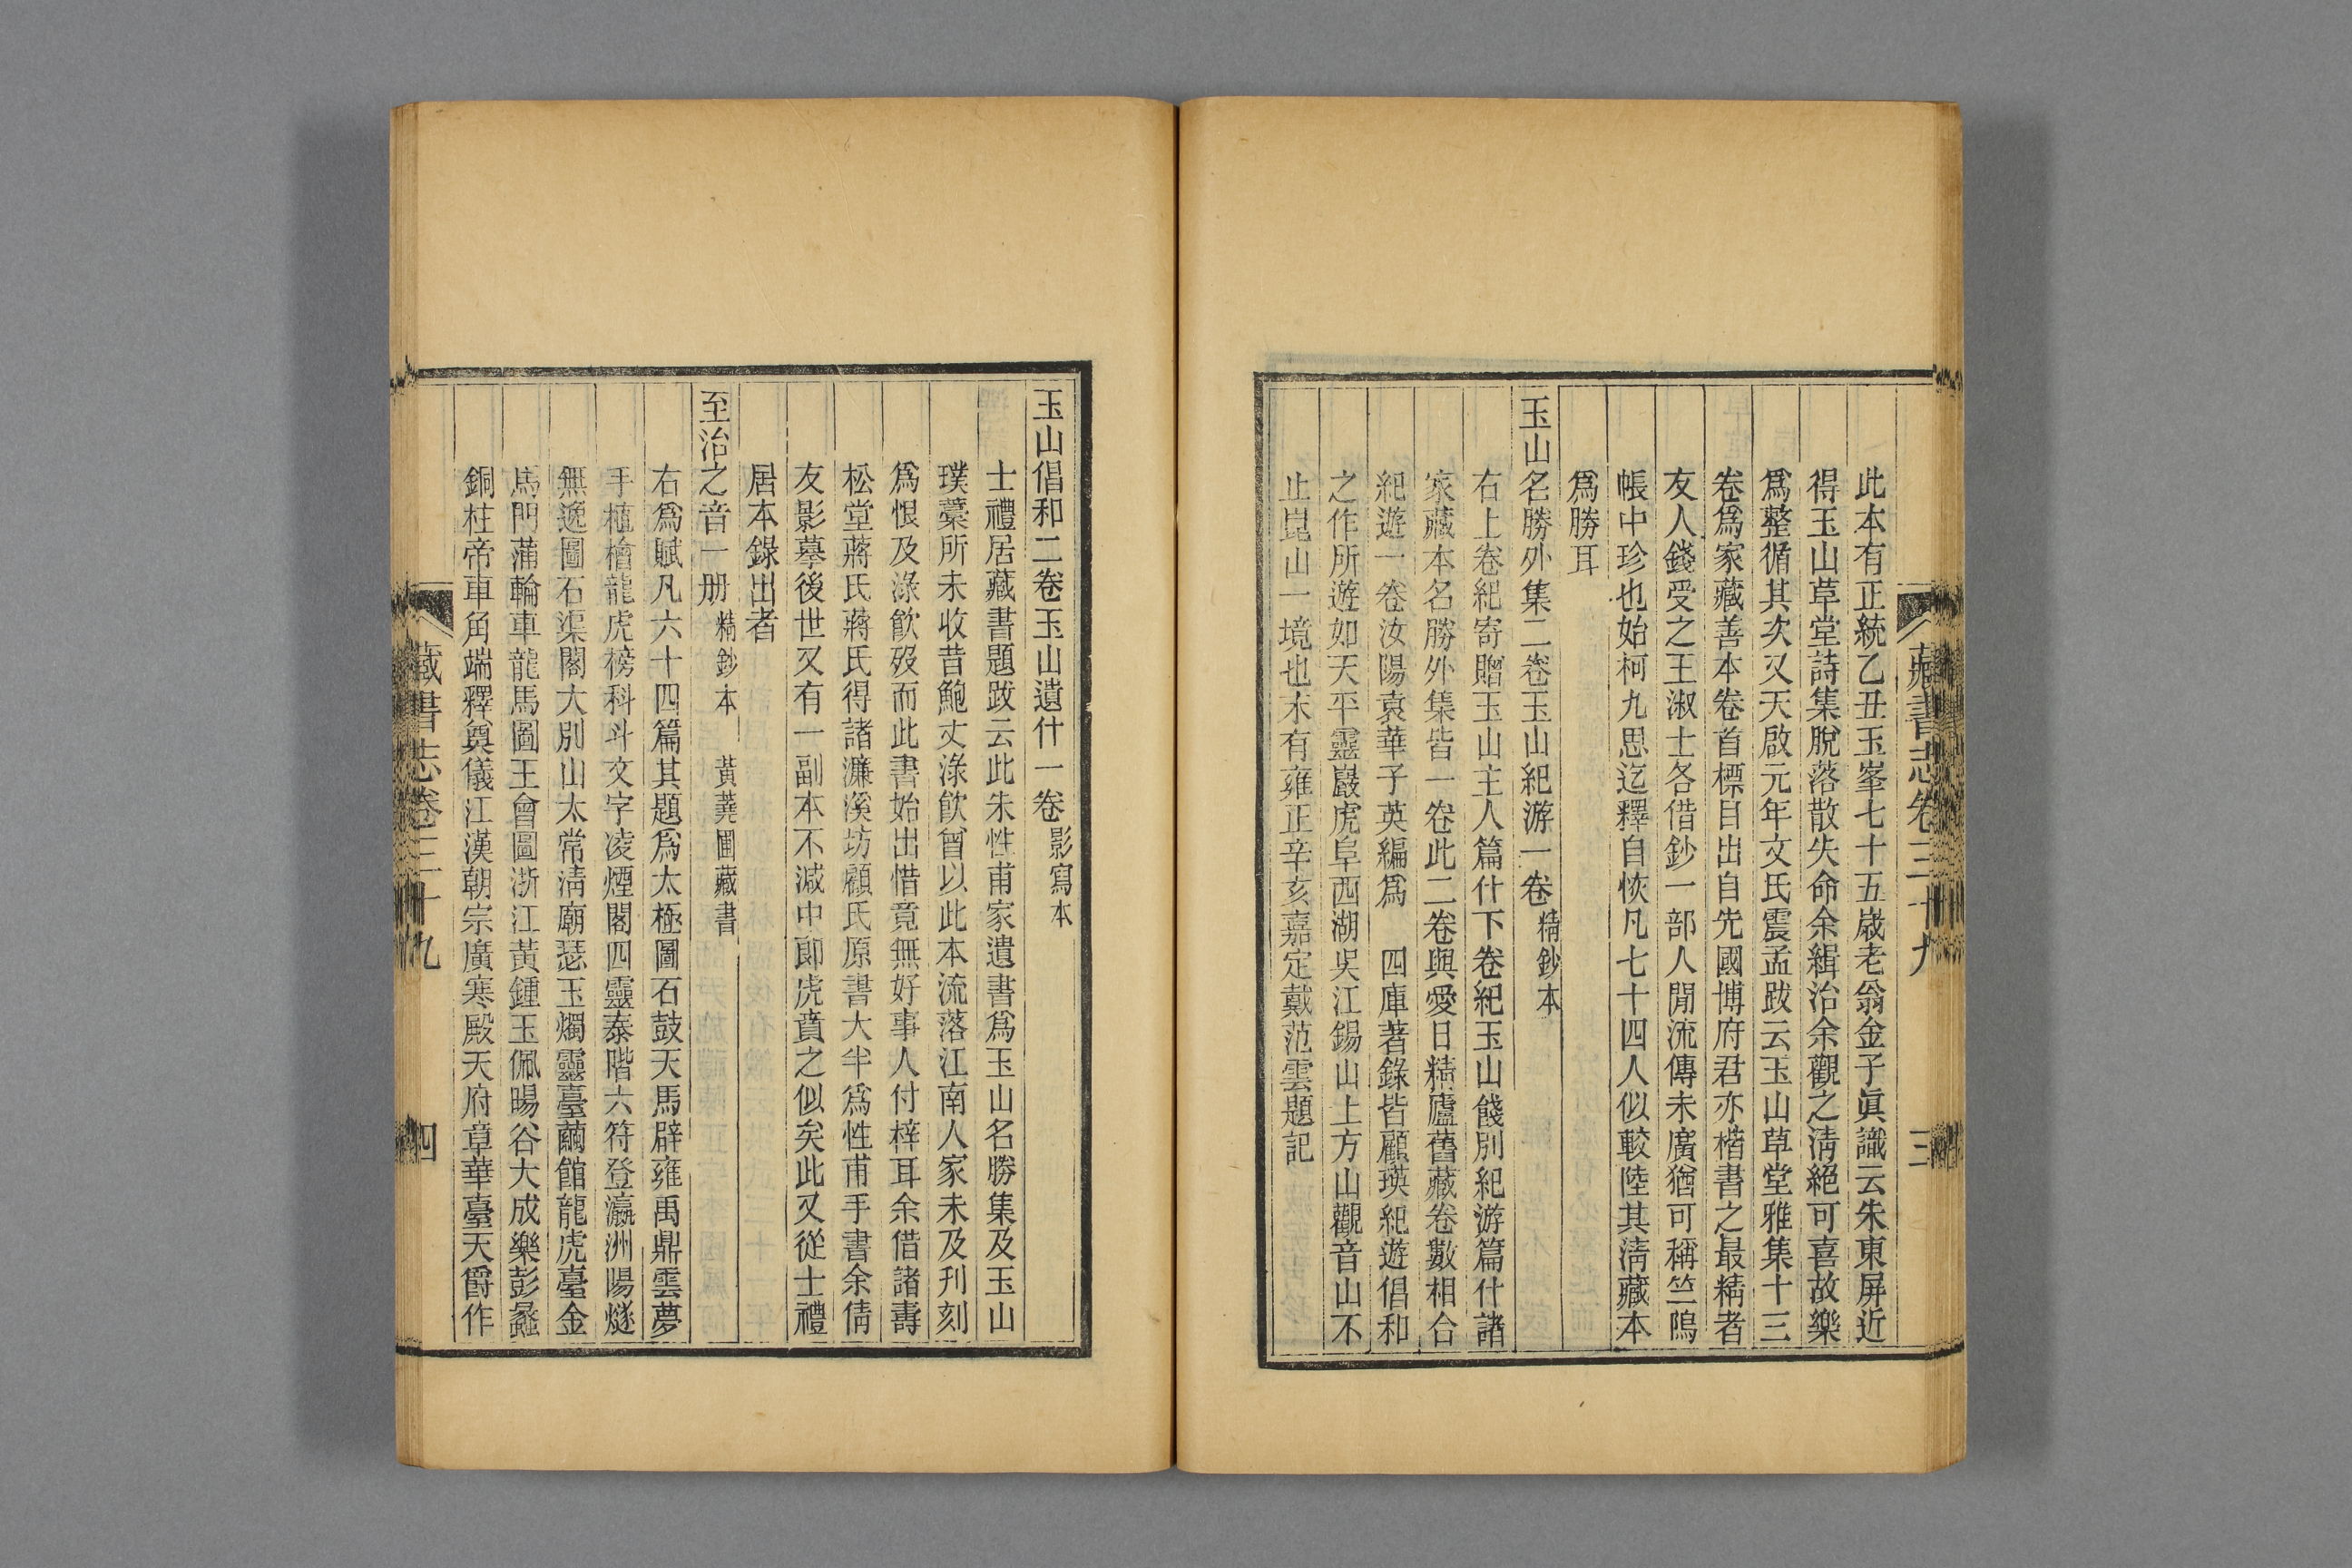 藏書志卷三十九 三
此本有正統乙丑玉峯七十五歲老翁金子眞識云朱東屏近
得玉山草堂詩集脫落散失命余緝治余觀之淸絕可喜故樂
爲整循其次又天啟元年文氏震孟跋云玉山草堂雅集十三
卷爲家藏善本卷首標目出自先國博府君亦楷書之最精者
友人錢受之王淑士各借鈔一部人閒流傳未廣猶可稱竺隖
帳中珍也始柯九思迄釋自恢凡七十四人似較陸其淸藏本
爲勝耳
玉山名勝外集二卷玉山紀游一卷精鈔本
右上卷紀寄贈玉山主人篇什下卷紀玉山餞別紀游篇什諸
家藏本名勝外集皆一卷此二卷與愛日精廬舊藏卷數相合
紀遊一卷汝陽袁華子英編爲 四庫著錄皆顧瑛紀遊倡和
之作所遊如天平靈巖虎阜西湖吳江錫山上方山觀音山不
止崑山一境也末有雍正辛亥嘉定戴范雲題記
玉山倡和二卷玉山遺什一卷影寫本
士禮居藏書題跋云此朱性甫家遺書爲玉山名勝集及玉山
璞藁所未收昔鮑丈淥飮曾以此本流落江南人家未及刋刻
爲恨及淥飮歿而此書始出惜竟無好事人付梓耳余借諸壽
松堂蔣氏蔣氏得諸濂溪坊顧氏原書大半爲性甫手書余倩
友影摹後世又有一副本不減中郞虎賁之似矣此又從士禮
居本錄出者
至治之音一册精鈔本 黃蕘圃藏書
右爲賦凡六十四篇其題爲太極圖石鼓天馬辟雍禹鼎雲夢
手植檜龍虎榜科斗文字凌煙閣四靈泰階六符登瀛洲陽燧
無逸圖石渠閣大別山太常淸廟瑟玉燭靈臺繭館龍虎臺金
馬門蒲輪車龍馬圖王會圖浙江黃鍾玉佩暘谷大成樂彭蠡
銅柱帝車角端釋奠儀江漢朝宗廣寒殿天府章華臺天爵作
藏書志卷三十九 四